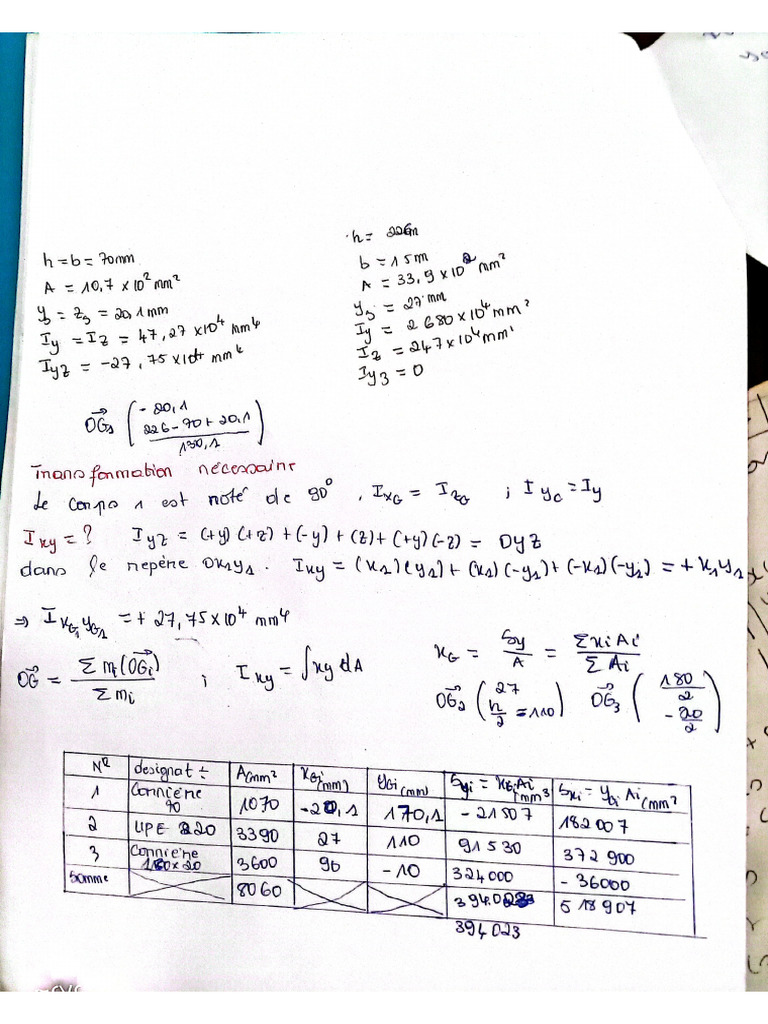 h = b = 70mm
A = 10,7 x 10² mm²
y₃ = z₃ = 20,1 mm
Iy = Iz = 47,27 x 10⁴ mm⁴
Iyz = -27,75 x 10⁴ mm⁴
h =
b = 15m
A = 33,9 x 10² mm²
y₃ = 27 mm
Iy = 2 680 x 10⁴ mm²
Iz = 247 x 10⁴ mm'
Iy₃ = 0
OG₁ ( -20,1
226-70+20,1
130,1 )
Transformation nécessaire
Le corps 1 est noté de 90° , IxG = IzG ; IyG = Iy
Ixy = ? Iyz = (+y)(+z) + (-y) + (z) + (+y)(-z) = Dyz
dans le repère Ox₁y₁. Ixy = (x₁)(y₁) + (x₁)(-y₁) + (-x₁)(-y₁) = + x₁y₁
⇒ IxG₁yG₁ = + 27,75 x 10⁴ mm⁴
OG = Σ mi(OGi) / Σ mi ; Ixy = ∫xy dA
xG = Sy / A = Σ xi Ai / Σ Ai
OG₂ ( 27
h/2 = 110 ) OG₃ ( 180/2
-20/2 )
Nº designat÷ A(mm² xGi (mm) yGi (mm) Syi = xGi Ai (mm³ Sxi = yGi Ai (mm²
1 Cornière 70 1070 -20,1 170,1 - 21507 182007
2 UPE 220 3390 27 110 91 530 372 900
3 Cornière 180 x 20 3600 90 -10 324000 - 36000
Somme 8060 518907
394023